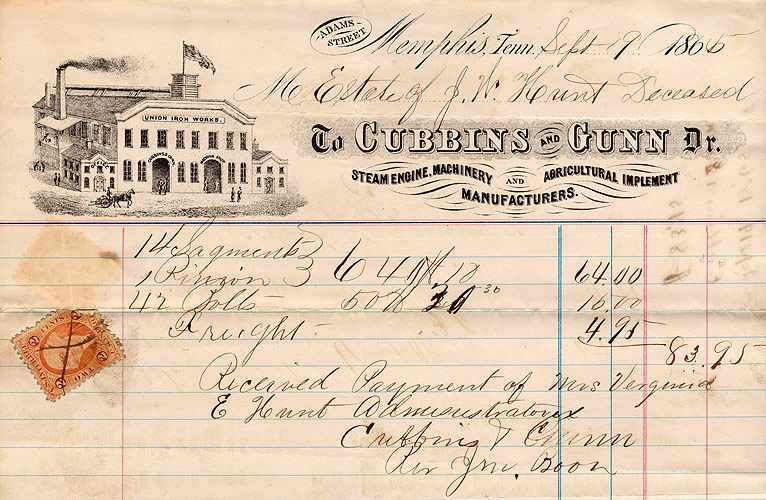 ADAMS STREET
Memphis, Tenn. Sept 19 1865
M Estate of J. W. Hunt Deceased
UNION IRON WORKS.
To CUBBINS AND GUNN Dr.
STEAM ENGINE, MACHINERY AND AGRICULTURAL IMPLEMENT
MANUFACTURERS.
14 Sagments
1 Pinion 640 # 10 64.00
42 Bolts 50# 30 15.00
Freight 4.95
83.95
Received Payment of Mrs Verginia
E Hunt Administratrix
Cubbins & Gunn
Per Jn. Boon